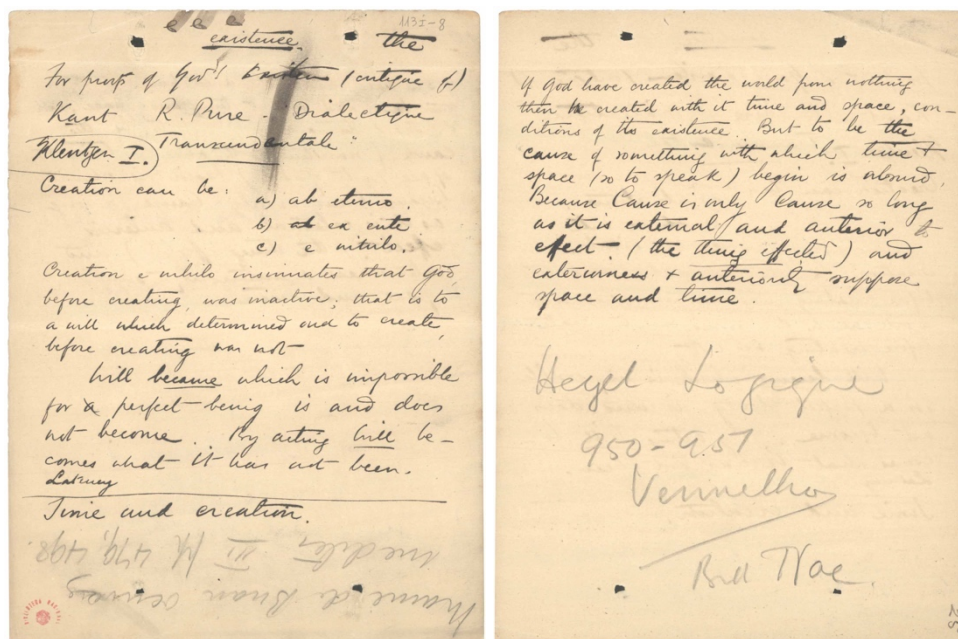 113I-8
existence. the
For proofs of God's (critique of)
Kant R. Pure. Dialectique
Transcendentale"
I.
Creation can be:
a) ab eterno.
b) ex ente
c) e nihilo.
Creation e nihilo insinuates that God,
before creating, was inactive; that is to
a will which determined and to create,
before creating was not
Will became which is impossible
for a perfect being is and does
not become. By acting will be-
comes what it has not been.
Time and creation.
Maine de Biran
pp 479, 498.
If God have created the world from nothing
then he created with it time and space, con-
ditions of its existence. But to be the
cause of something with which time +
space (so to speak) begin is absurd.
Because Cause is only Cause so long
as it is external and anterior to
effect. (the thing effected) and
externess + anteriority suppose
space and time.
Hegel Logique
950-951
Vermelho
25